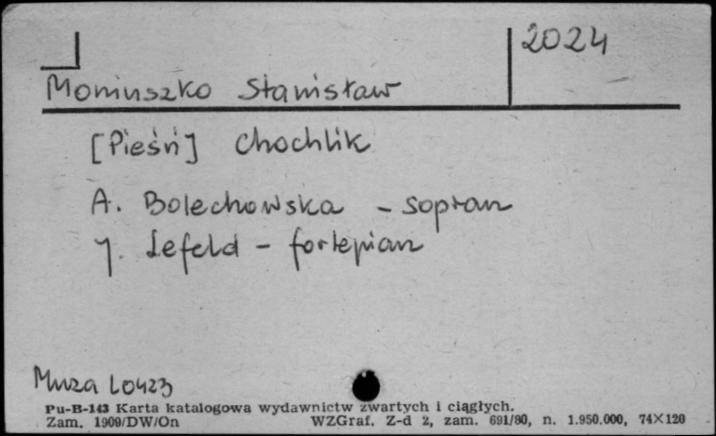 2024
Moniuszko Stanisław
[Pieśń] Chochlik
A. Bolechowska - sopran
J. Lefeld - fortepian
Muza L0423
Pu-B-143 Karta katalogowa wydawnictw zwartych i ciągłych.
Zam. 1909/DW/On WZGraf. Z-d 2, zam. 691/80, n. 1.950.000, 74×120